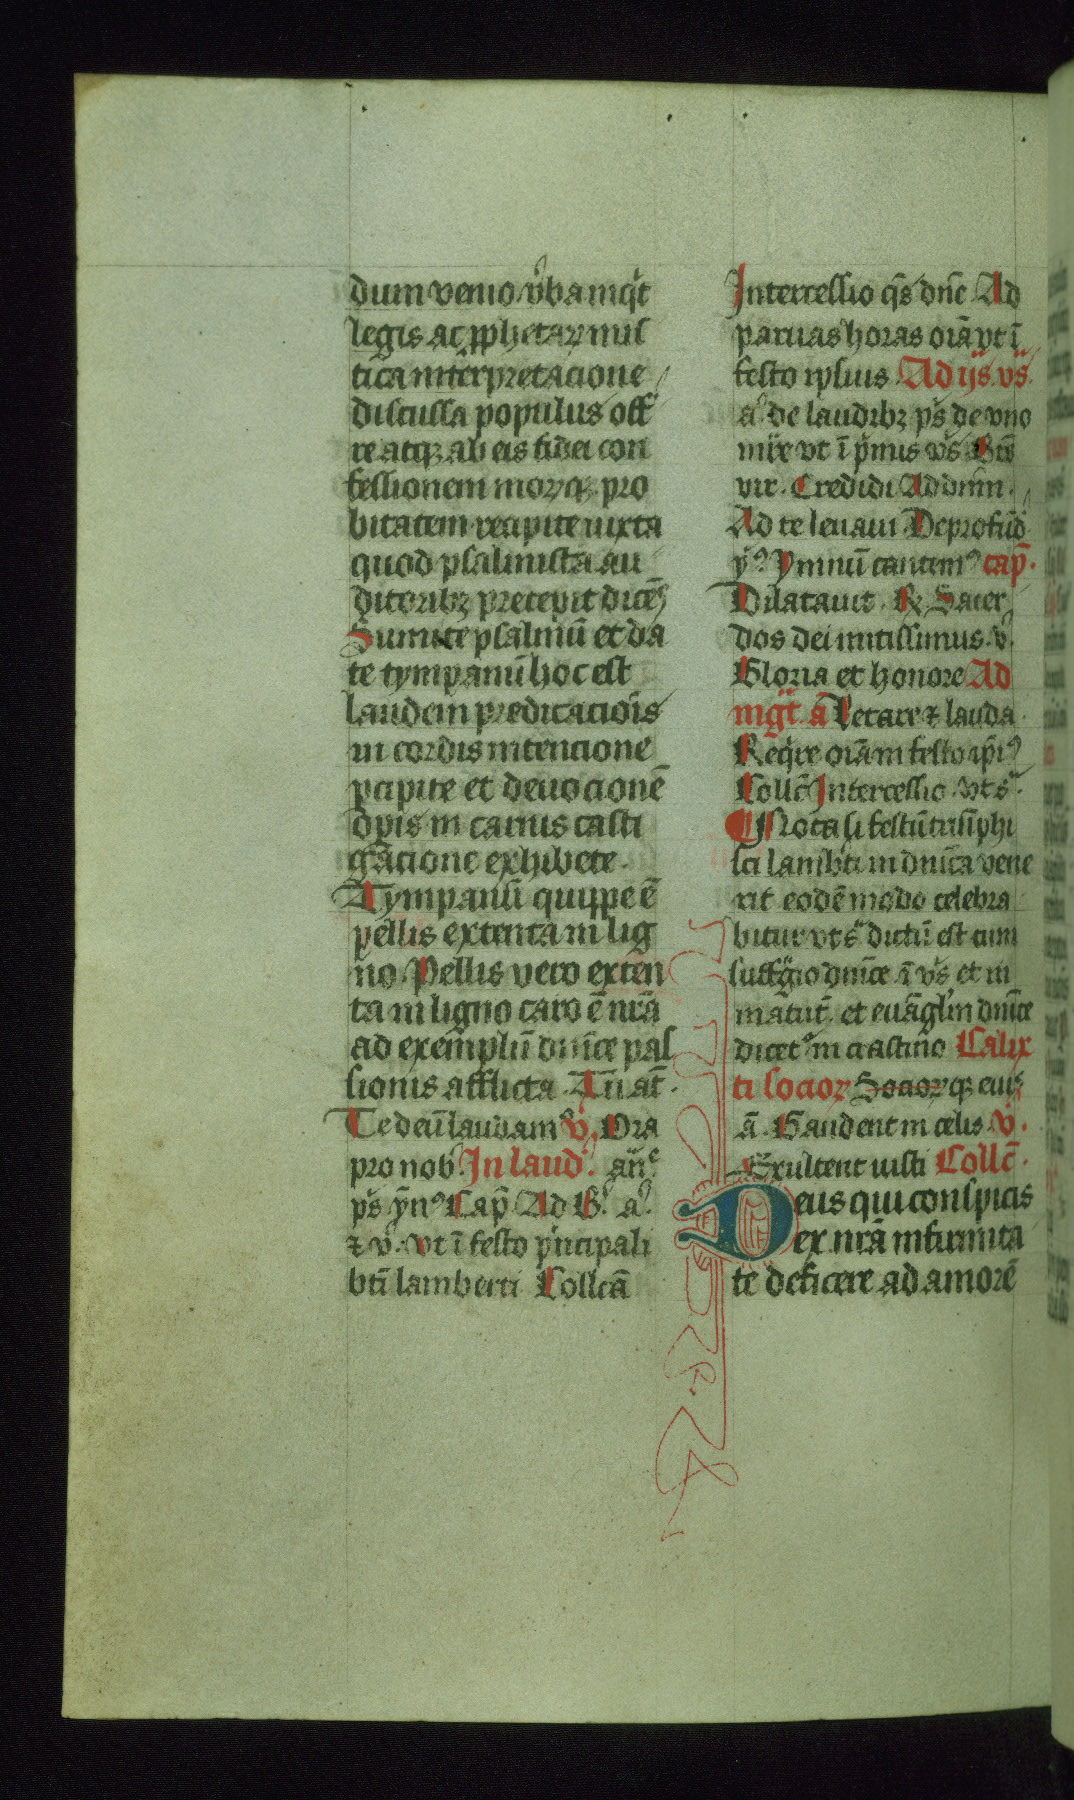 dum venio v̓ba inqͥt
legis ac ꝓphetaꝝ mis
tica int̓pretacione
discussa populus off̓
re atqꝫ ab eis fidei con
fessionem moꝝqꝫ pro
bitatem recipite iuxta
quod psalmista au
ditoribꝫ precepit dicē
Sumite psalmū et da
te tympanū hoc est
laudem predicacio͞is
in cordis intencione
ꝑcipite et deuocionē
oꝑis in carnis casti
gacione exhibete.
Tympanū quippe ē
pellis extenta in lig
no. Pellis vero exten
ta in ligno caro ē nr̄a
ad exemplū dn̄ice pas
sionis afflicta. Tu aūt.
Te deū laudamꝰ v̓. Ora
pro nob̓. In laud̓. an̄e
ps̄ ym̄ꝰ Cap̄ Ad B̓. a.
⁊ v̓. vt ī festo pͥncipali
bt̄i lamberti Collc̄a
Intercessio qs̄ dn̄e Ad
paruas horas oīa vt ī
festo ipsius Ad ijs vs̄.
a de laudibꝫ ps̄ de vno
mr̄e vt ī pͥmis vs̄ Bt̄us
vir. Credidi Ad dn̄m.
Ad te leuaui De profūd̓
yꝰ Ymnū cantemꝰ cap̄.
Dilatauit. ℟ Sacer
dos dei mitissimus. v̓
Gloria et honore Ad
mgͣt. ā Letare ⁊ lauda
Reqͥre oīa in festo ip̄iꝰ
Collc̄ Intercessio vt sͣ.
¶ Nota si festū triūphi
sc̄i lamb̓ti in dn̄ica vene
rit eodē modo celebra
bitur vt sͣ dictū est cum
suffͣgio dn̄ice ī vs̄ et in
matut̄. et euāgl̓m dn̄ice
dicetꝰ in crastino Calix
ti socioꝝ Socioꝝqꝫ eiꝰ
ā. Gaudent in celis v̓.
Exultent iusti Collc̄.
Deus qui conspicis
ex nr̄a infirmita
te deficere ad amorē